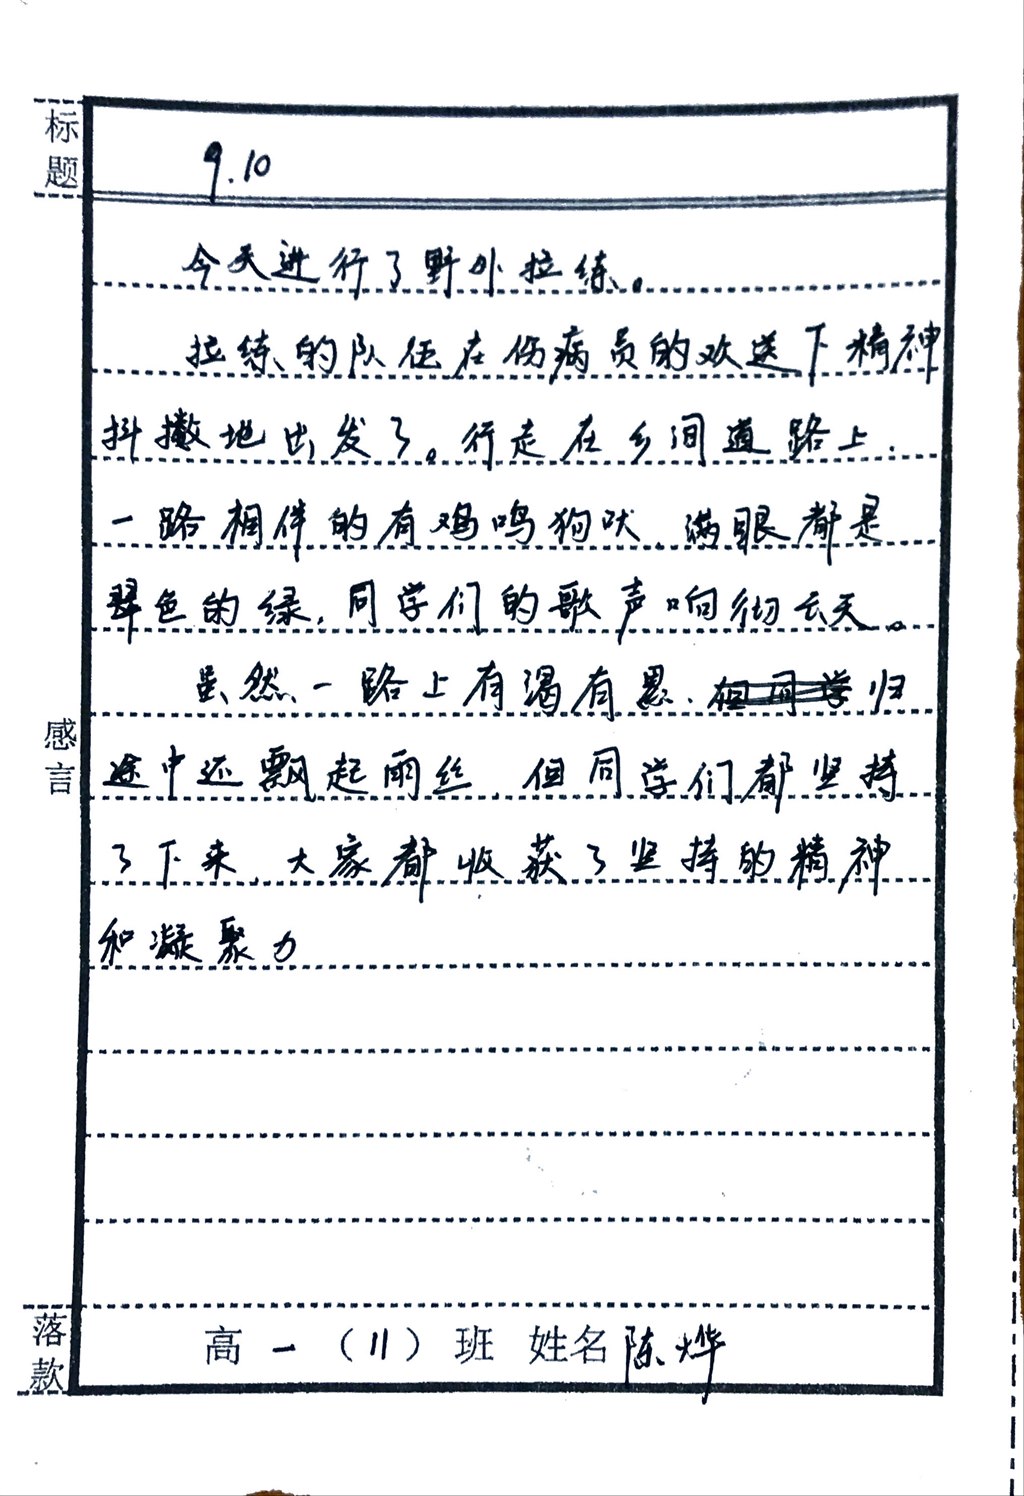 标题
9.10
今天进行了野外拉练。
拉练的队伍在伤病员的欢送下精神
抖擞地出发了。行走在乡间道路上.
一路相伴的有鸡鸣狗吠,满眼都是
翠色的绿,同学们的歌声响彻云天。
虽然一路上有渴有累.但同学归
途中还飘起雨丝,但同学们都坚持
了下来,大家都收获了坚持的精神
和凝聚力
感言
落款
高一(11)班 姓名陈烨